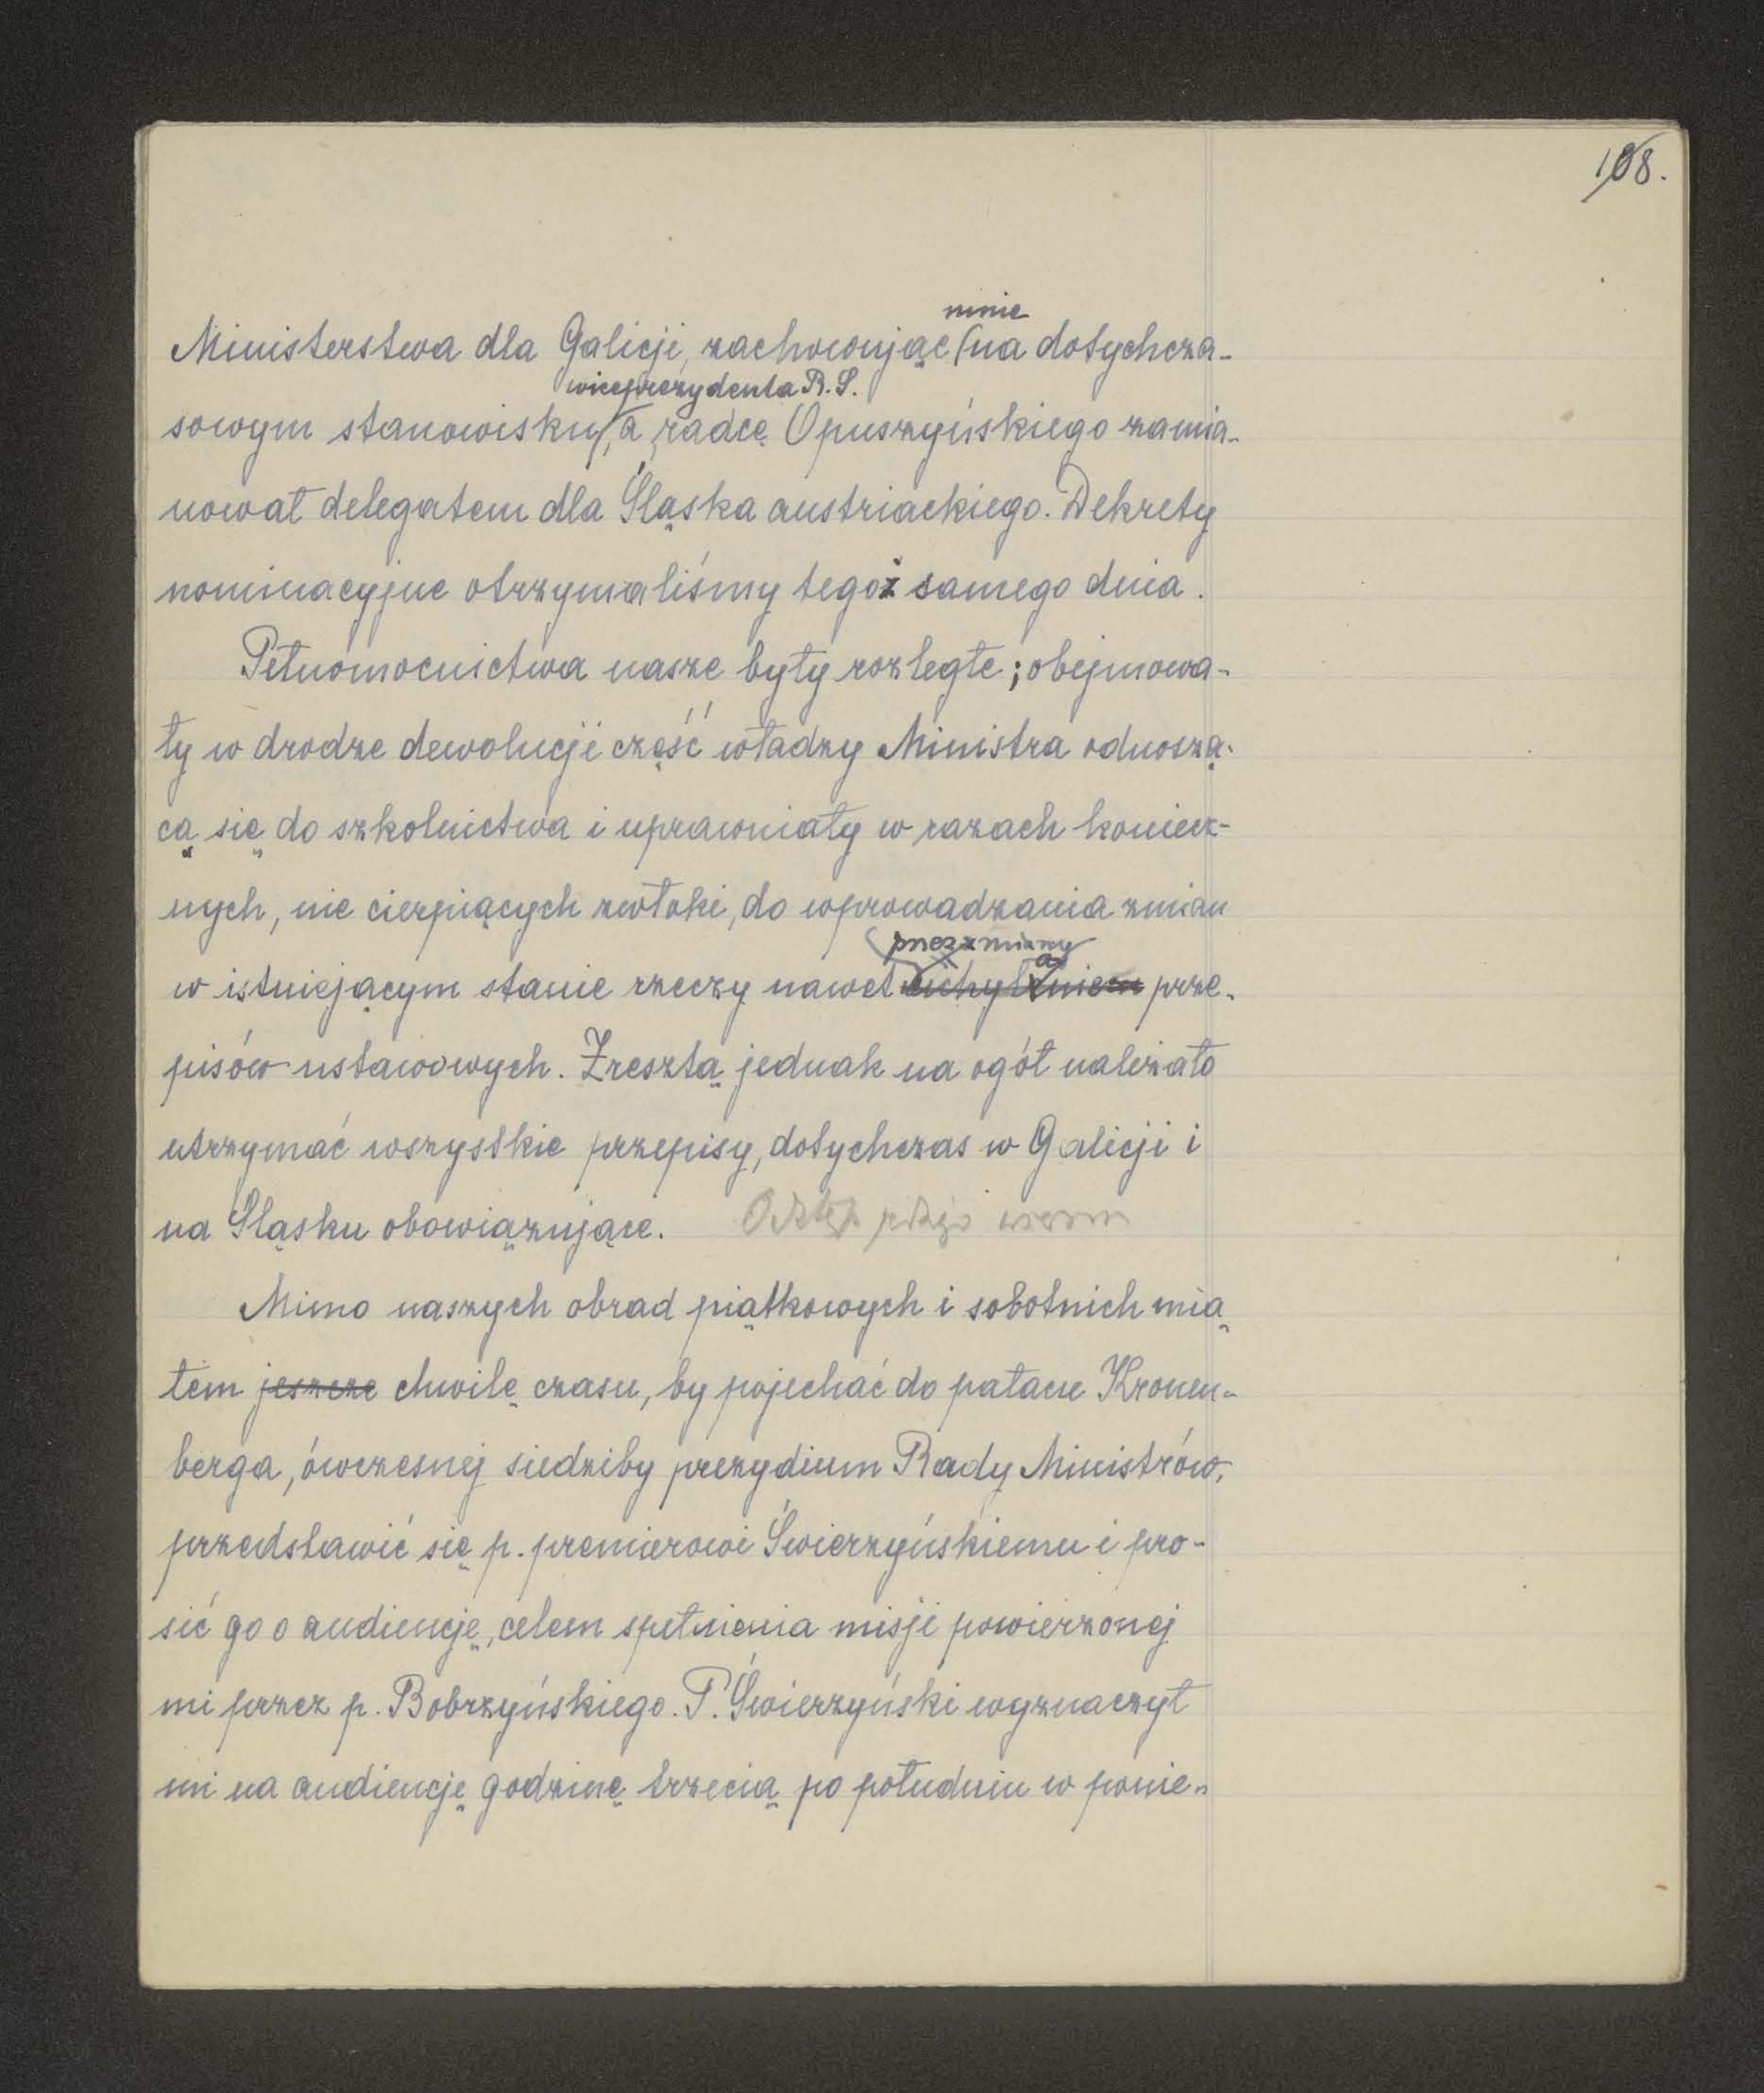 108.
mnie
Ministerstwa dla Galicji, zachowując na dotychcza-
wiceprezydenta R. S.
sowym stanowisku, a radcę Opuszyńskiego zamia-
nował delegatem dla Śląska austriackiego. Dekrety
nominacyjne otrzymaliśmy tegoż samego dnia.
Pełnomocnictwa nasze były rozległe; obejmowa-
ły w drodze dewolucji część władzy Ministra odnoszą-
cą się do szkolnictwa i uprawniały w razach koniecz-
nych, nie cierpiących zwłoki, do wprowadzania zmian
przez zmiany
w istniejącym stanie rzeczy nawet uchylaniem prze-
pisów ustawowych. Zresztą jednak na ogół należało
utrzymać wszystkie przepisy, dotychczas w Galicji i
na Śląsku obowiązujące.
Mimo naszych obrad piątkowych i sobotnich mia
łem jeszcze chwilę czasu, by pojechać do pałacu Kronen-
berga, ówczesnej siedziby prezydium Rady Ministrów,
przedstawić się p. premierowi Świerzyńskiemu i pro-
sić go o audiencję, celem spełnienia misji powierzonej
mi przez p. Bobrzyńskiego. P. Świerzyński wyznaczył
mi na audiencję godzinę trzecią po południu w ponie-